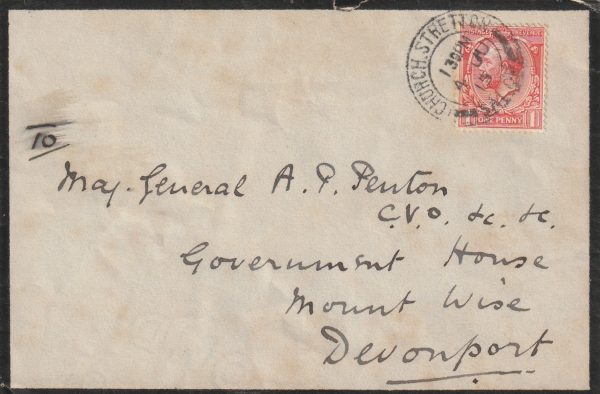 CHURCH.STRETTON
1 30PM
4 JU
15
POSTAGE REVENUE
1 ONE PENNY 1
10
Maj. General A. P. Penton
C.V.O. &c. &c.
Government House
Mount Wise
Devonport